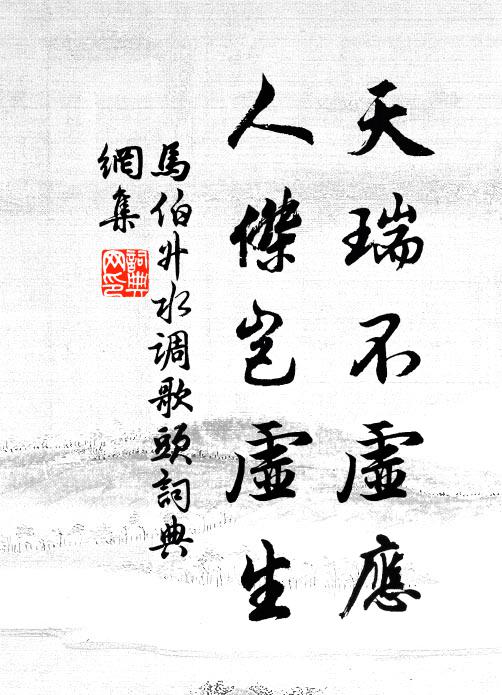 天瑞不虛應
人傑豈虛生
馬伯升水调歌頭詞典
網集
詞典
网印